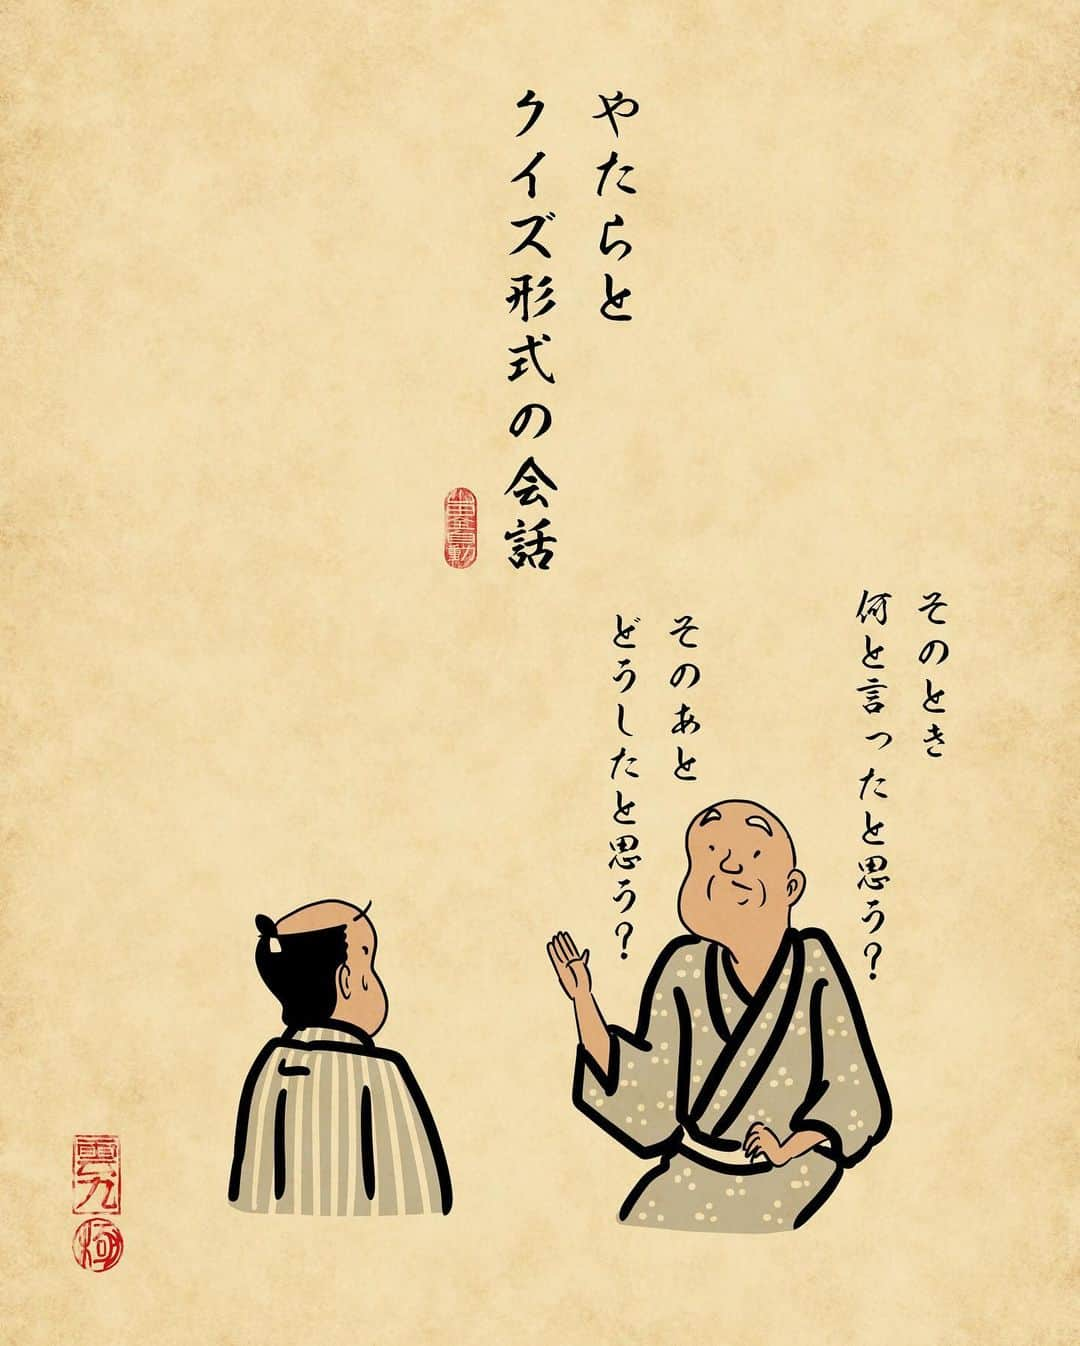 やたらと
クイズ形式の会話
そのとき
何と言ったと思う？
そのあと
どうしたと思う？